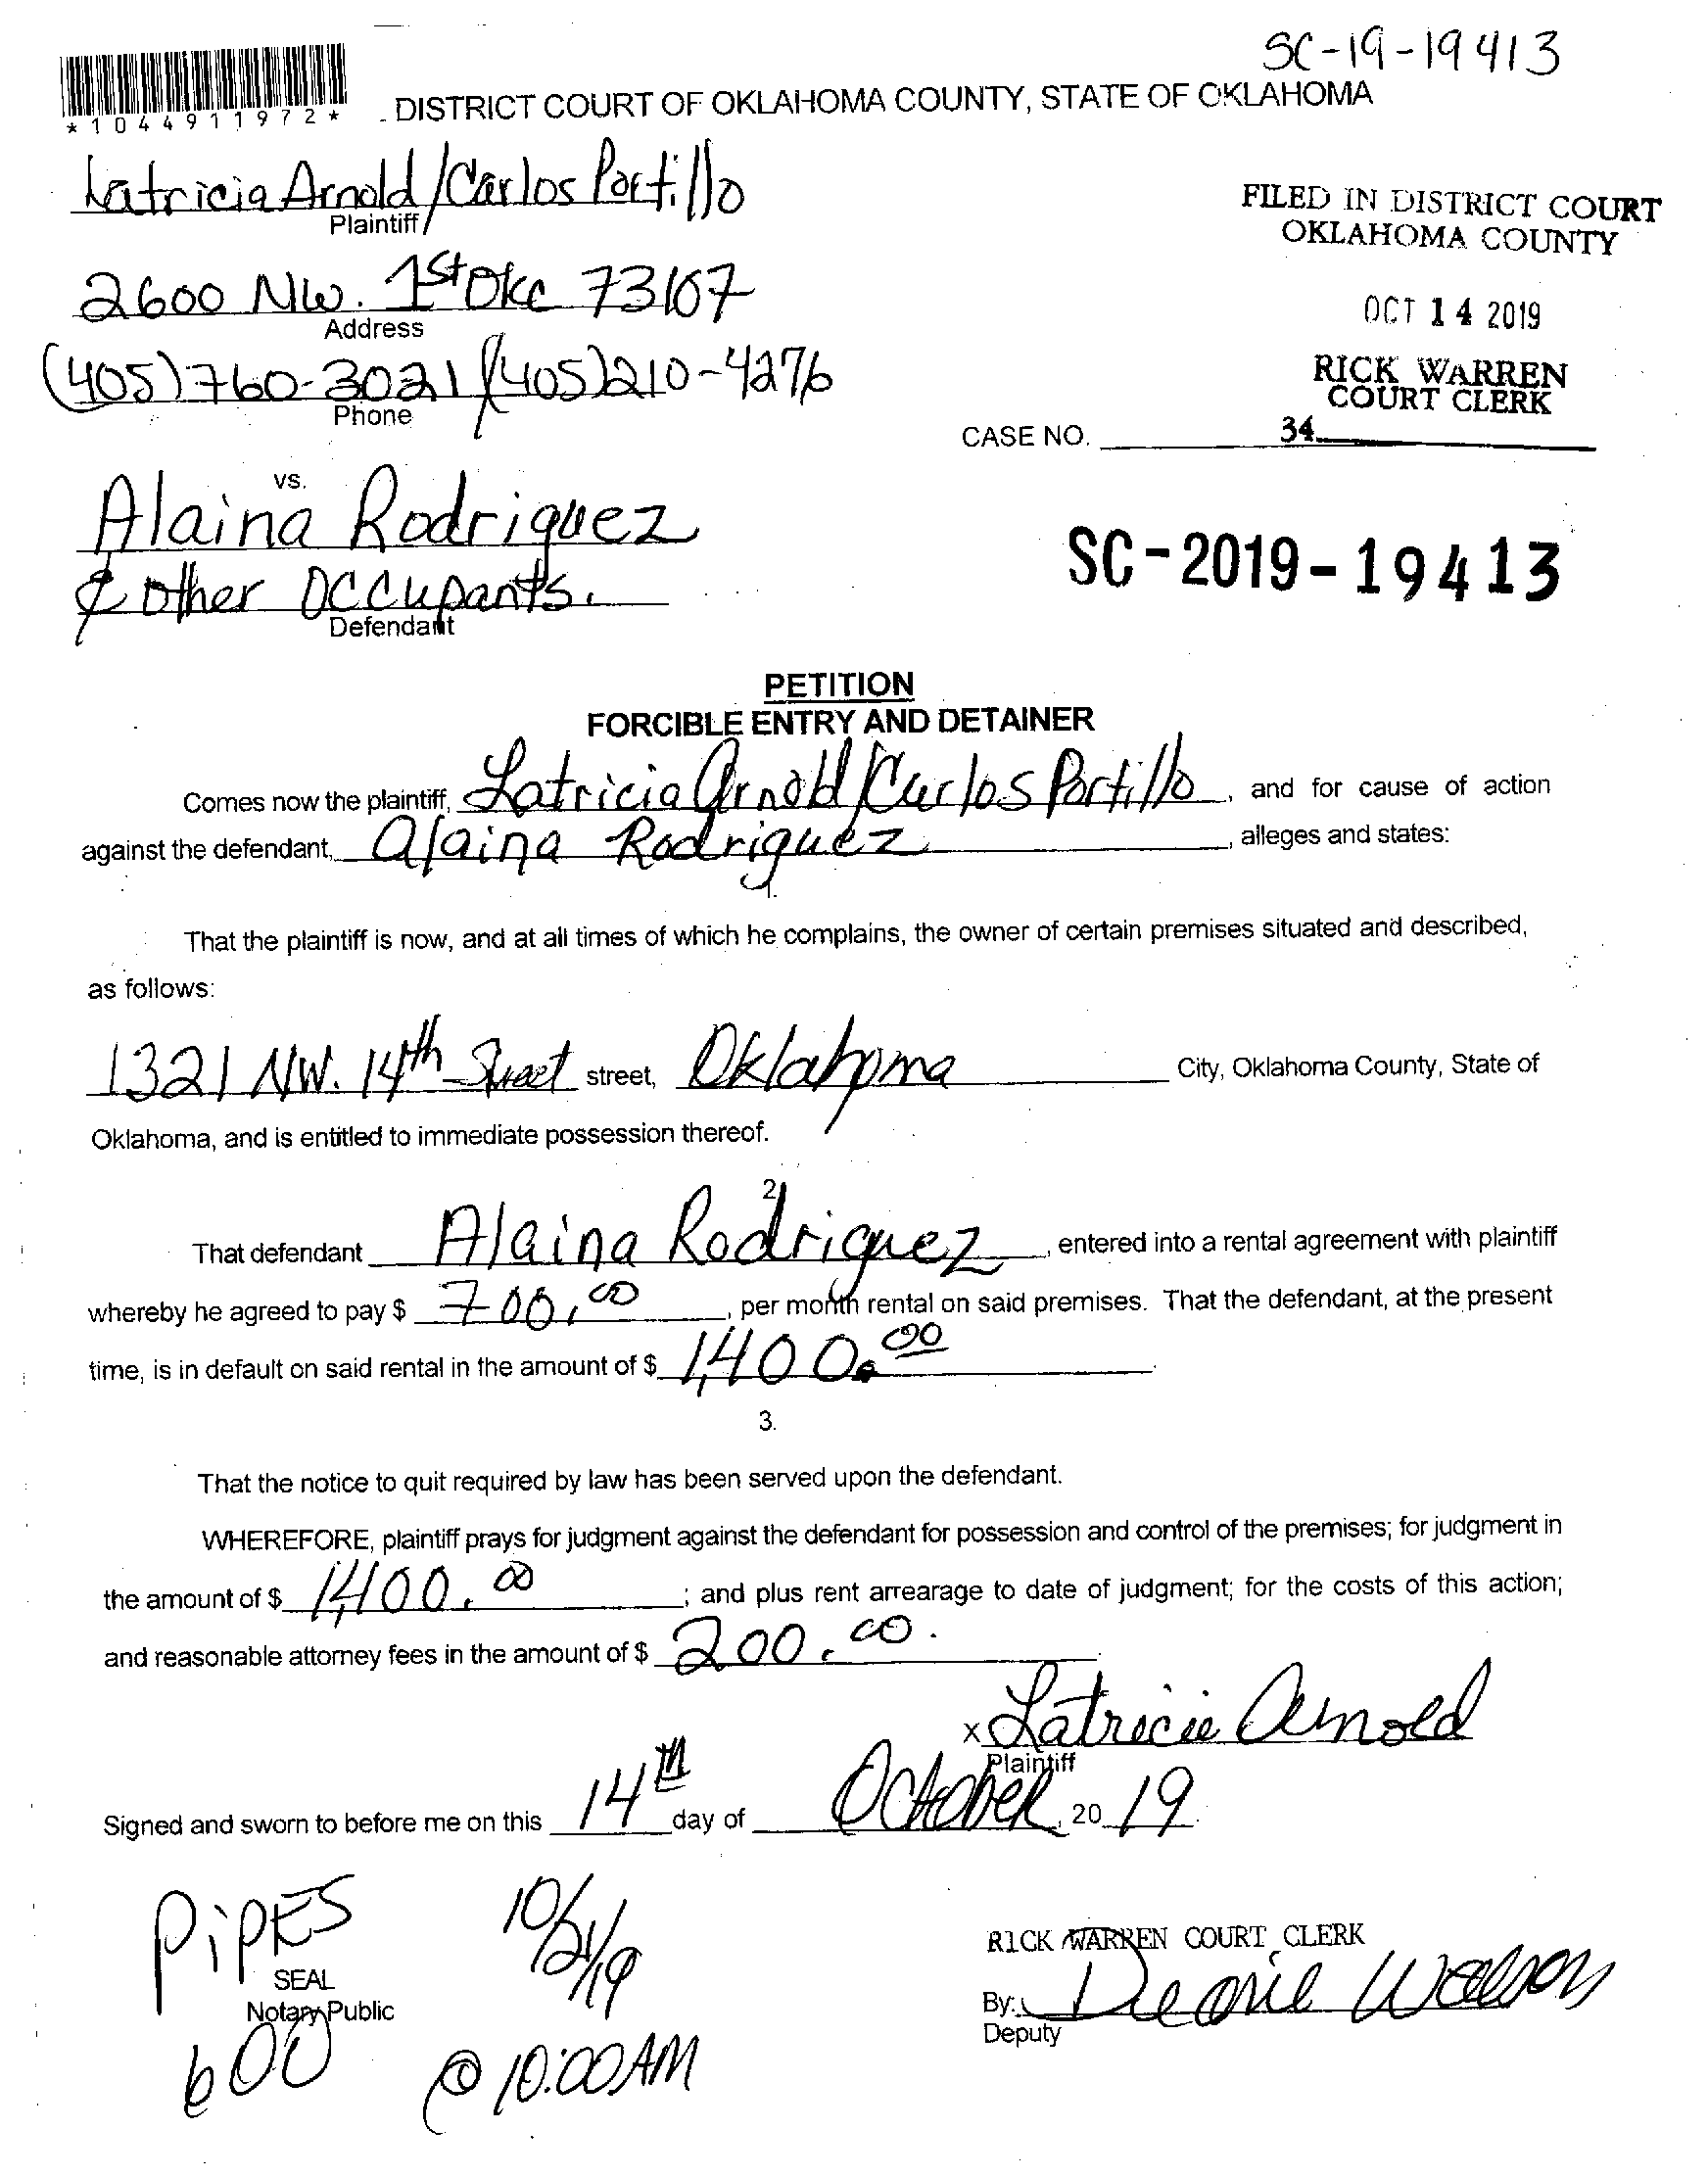 SC-19-19413
*1044911972*
DISTRICT COURT OF OKLAHOMA COUNTY, STATE OF OKLAHOMA
Latricia Arnold/Carlos Portillo
Plaintiff
FILED IN DISTRICT COURT
OKLAHOMA COUNTY
2600 NW. 1st OKC 73107
Address
OCT 14 2019
(405)760-3021/(405)210-4276
Phone
RICK WARREN
COURT CLERK
CASE NO. 34
vs.
Alaina Rodriguez
& other Occupants.
Defendant
SC-2019-19413
PETITION
FORCIBLE ENTRY AND DETAINER
Comes now the plaintiff, Latricia Arnold/Carlos Portillo, and for cause of action
against the defendant, Alaina Rodriguez, alleges and states:
1.
That the plaintiff is now, and at all times of which he complains, the owner of certain premises situated and described,
as follows:
1321 NW. 14th Street street, Oklahoma City, Oklahoma County, State of
Oklahoma, and is entitled to immediate possession thereof.
2.
That defendant Alaina Rodriguez, entered into a rental agreement with plaintiff
whereby he agreed to pay $ 700.00, per month rental on said premises. That the defendant, at the present
time, is in default on said rental in the amount of $ 1,400.00.
3.
That the notice to quit required by law has been served upon the defendant.
WHEREFORE, plaintiff prays for judgment against the defendant for possession and control of the premises; for judgment in
the amount of $ 1,400.00; and plus rent arrearage to date of judgment; for the costs of this action;
and reasonable attorney fees in the amount of $ 200.00.
x Latricia Arnold
Plaintiff
Signed and sworn to before me on this 14th day of October, 20 19.
PiPES
10/21/19
SEAL
Notary Public
600
@ 10:00 AM
RICK WARREN COURT CLERK
By:
Deputy